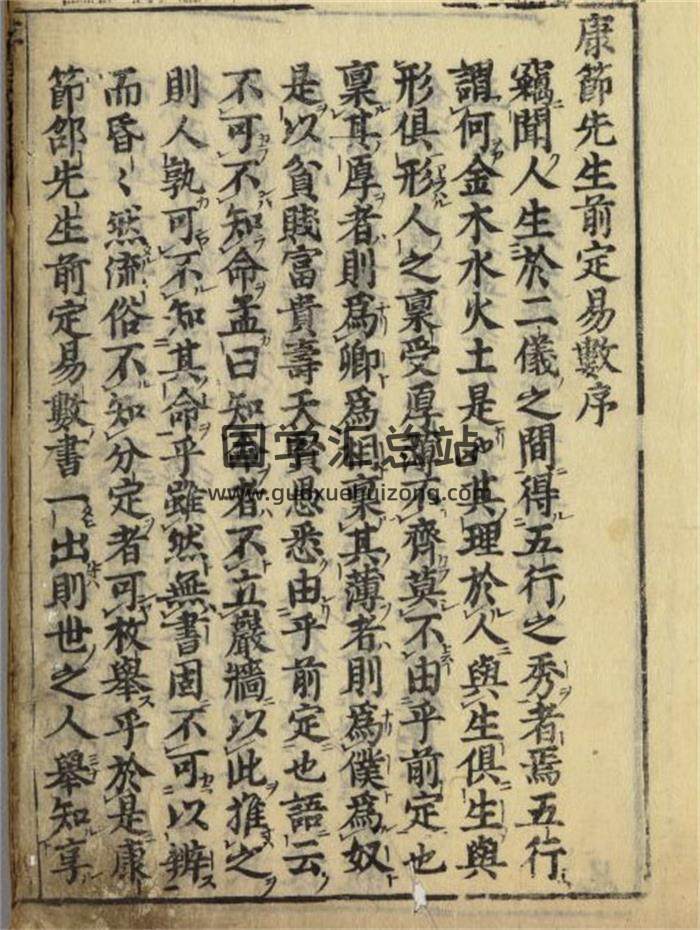 康節先生前定易數序
竊聞人生於二儀之間得五行之秀者焉五行
謂何金木水火土是也其理於人與生俱生與
形俱形人之稟受厚薄不齊莫不由乎前定也
稟其厚者則爲卿爲相稟其薄者則爲僕爲奴
是以貧賤富貴壽夭賢愚悉由乎前定也語云
不可不知命孟曰知命者不立巖牆以此推之
則人孰可不知其命乎雖然無書固不可以辨
而昏〻然流俗不知分定者可枚舉乎於是康
節邵先生前定易數書一出則世之人舉知享
国学汇总站
www.guoxuehuizong.com